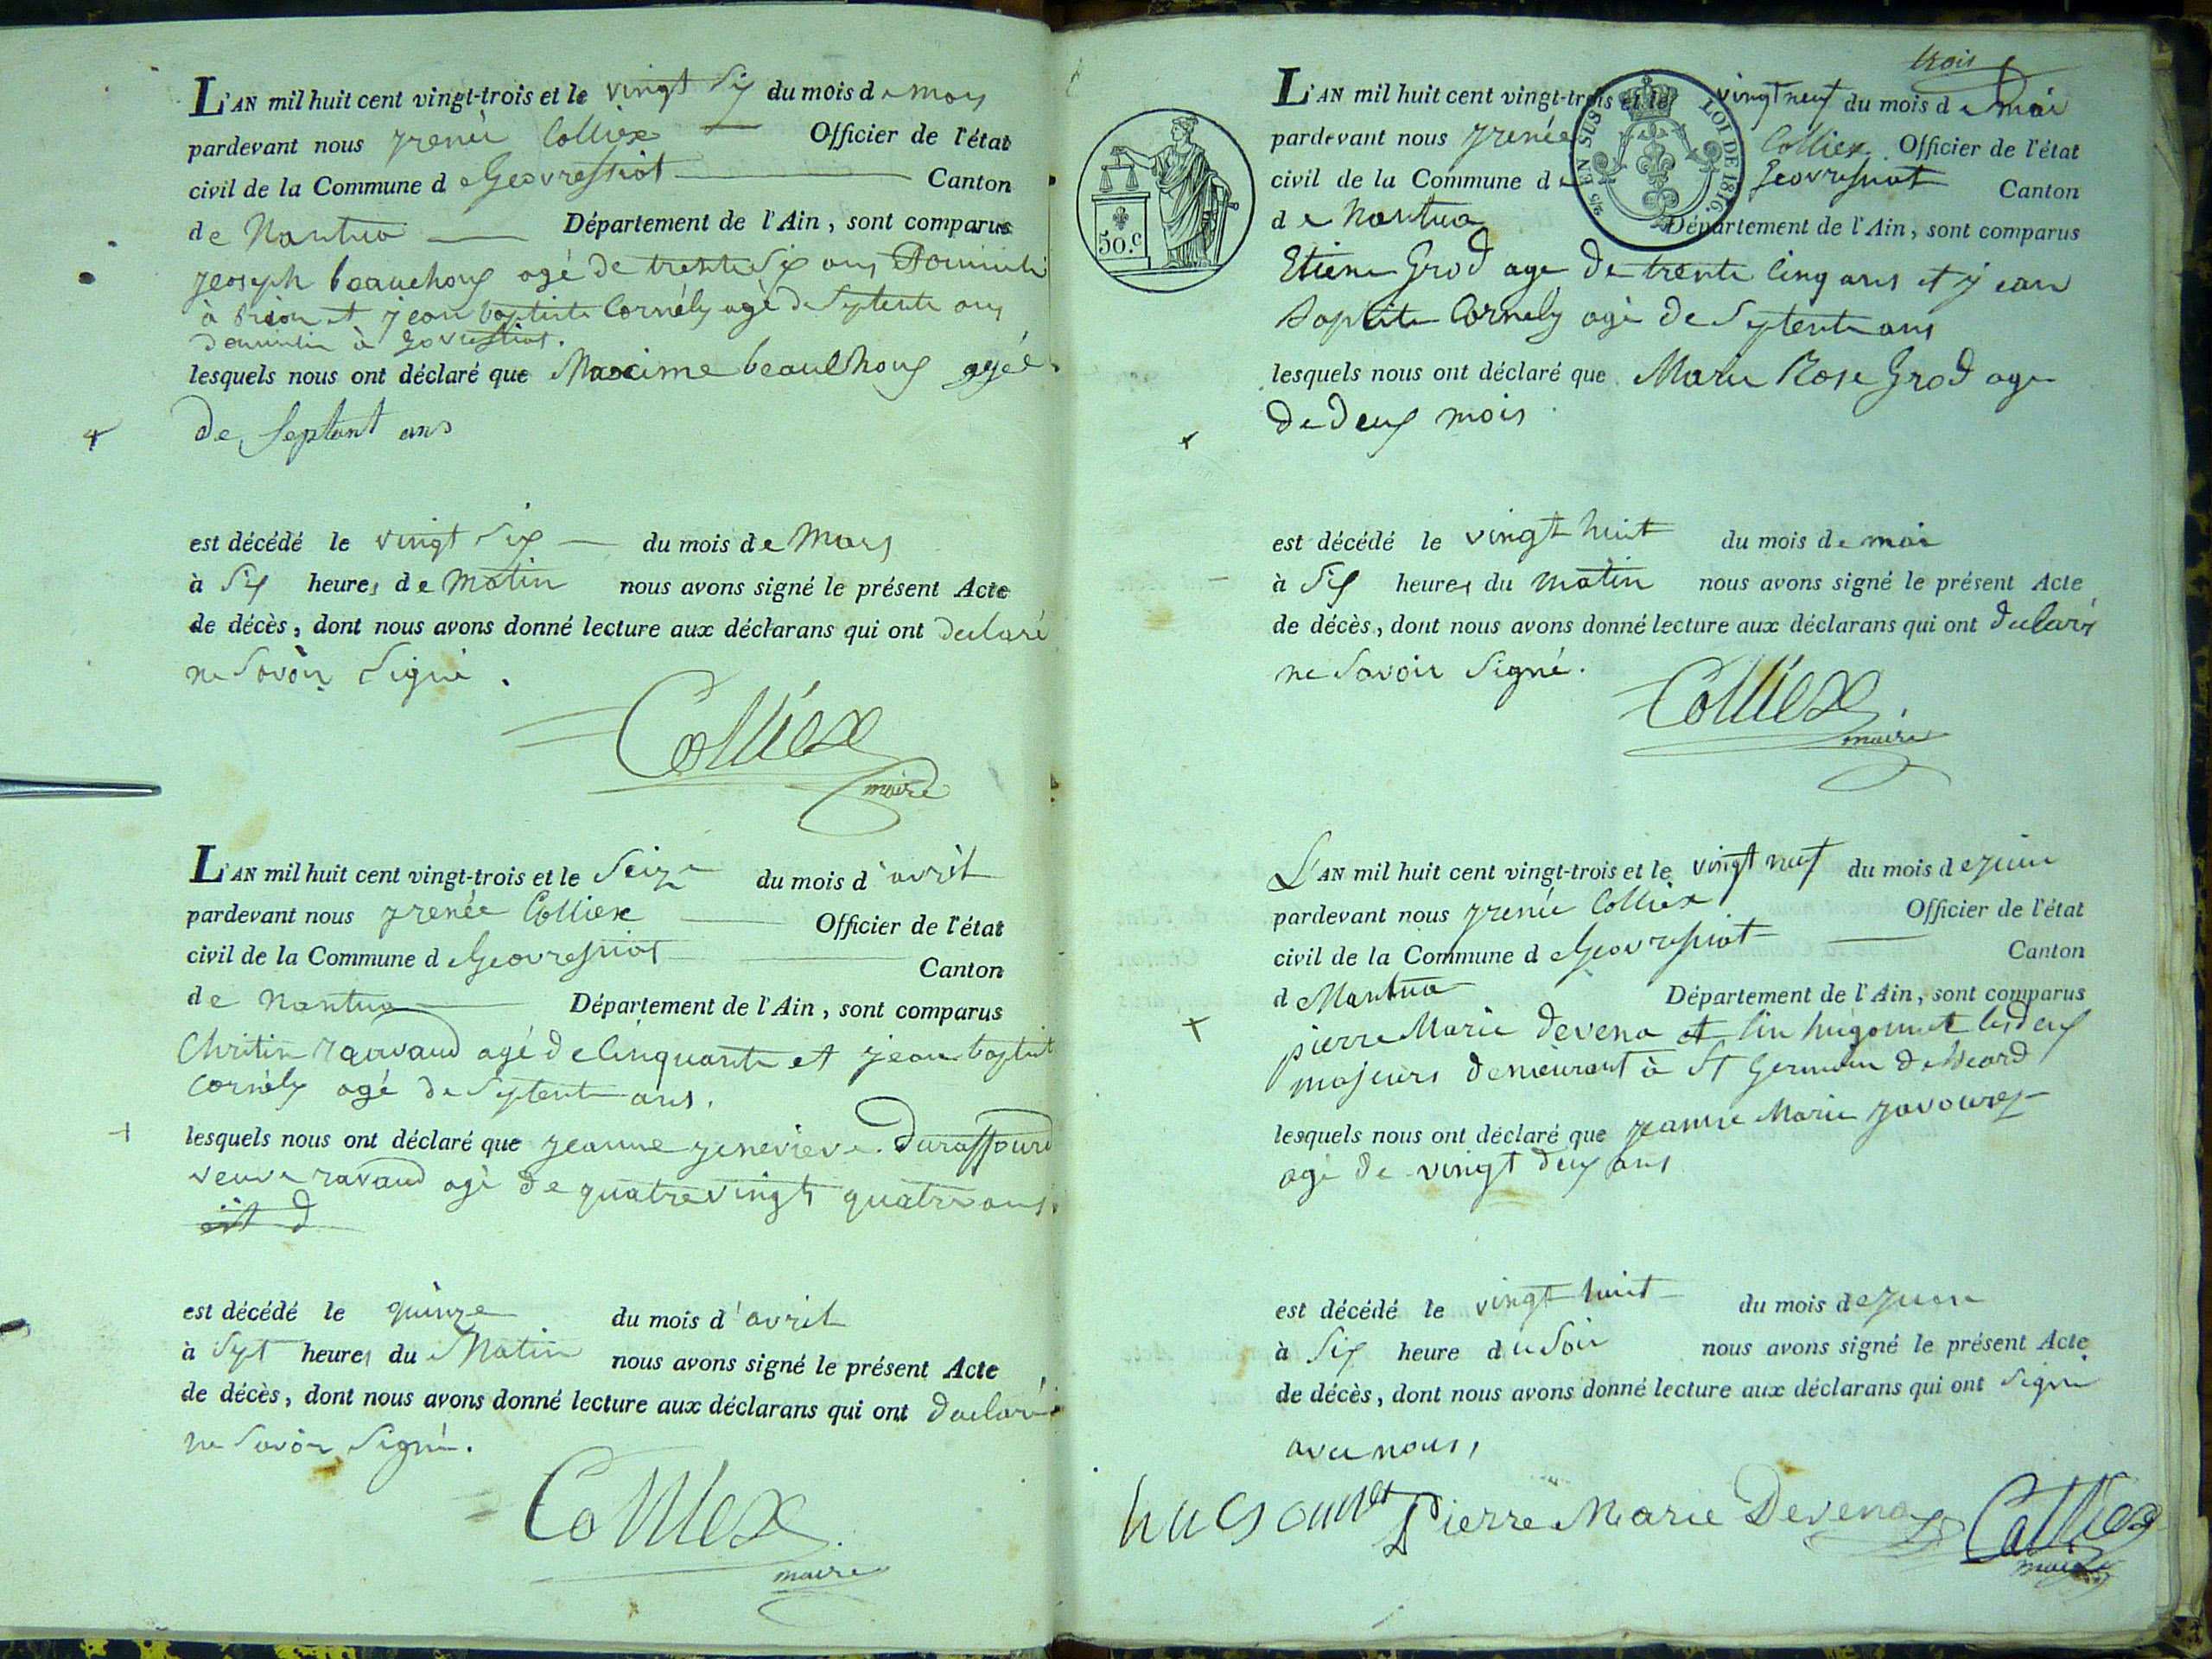 L'AN mil huit cent vingt-trois et le vingt Six du mois de mars
pardevant nous jrenée Colliex Officier de l'état
civil de la Commune de Geovressiat Canton
de Nantua Département de l'Ain, sont comparus
jeoseph beauchoux agé de trente Six ans
à Brion et jean baptiste Cornély agé de Septente ans
à
lesquels nous ont déclaré que Maxime agée
de Septant ans
est décédé le vingt Six du mois de Mars
à Six heures de Matin nous avons signé le présent Acte
de décès, dont nous avons donné lecture aux déclarans qui ont declaré
ne Savoir Signé.
Colliex
maire
L'AN mil huit cent vingt-trois et le Seize du mois d'avril
pardevant nous jrenée Colliex Officier de l'état
civil de la Commune de Geovressiat Canton
de Nantua Département de l'Ain, sont comparus
Christin ravaud agé de Cinquante et jean baptist
Cornély agé de Septente ans.
lesquels nous ont déclaré que jeanne jenevieve Duraffourd
veuve ravaud agé de quatre vingts quatre ans.
est d
est décédé le quinze du mois d'avril
à Sept heures du Matin nous avons signé le présent Acte
de décès, dont nous avons donné lecture aux déclarans qui ont declaré
ne Savoir Signé.
Colliex
maire
trois
L'AN mil huit cent vingt-trois et le vingt neuf du mois de mai
pardevant nous jrenée Colliex Officier de l'état
civil de la Commune de Geovressiat Canton
de Nantua Département de l'Ain, sont comparus
50.c
25 EN SUS LOI DE 1816.
Etiene Grod age de trente Cinq ans et jean
Baptiste Cornely agé de Septente ans
lesquels nous ont déclaré que Marie Rose Grod age
de Deux mois
est décédé le vingt huit du mois de mai
à Six heures du matin nous avons signé le présent Acte
de décès, dont nous avons donné lecture aux déclarans qui ont declaré
ne Savoir Signé.
Colliex
maire
L'AN mil huit cent vingt-trois et le vingt neuf du mois de juin
pardevant nous jrenée Colliex Officier de l'état
civil de la Commune de Geovressiat Canton
de Nantua Département de l'Ain, sont comparus
pierre Marie Devena et lin hugonnet les deux
majeurs demeurant à St Germain de Beard
lesquels nous ont déclaré que jeanne Marie
agé de vingt deux ans
est décédé le vingt huit du mois de juin
à Six heure du Soir nous avons signé le présent Acte
de décès, dont nous avons donné lecture aux déclarans qui ont Signé
avec nous,
Pierre Marie Devena Colliex
maire